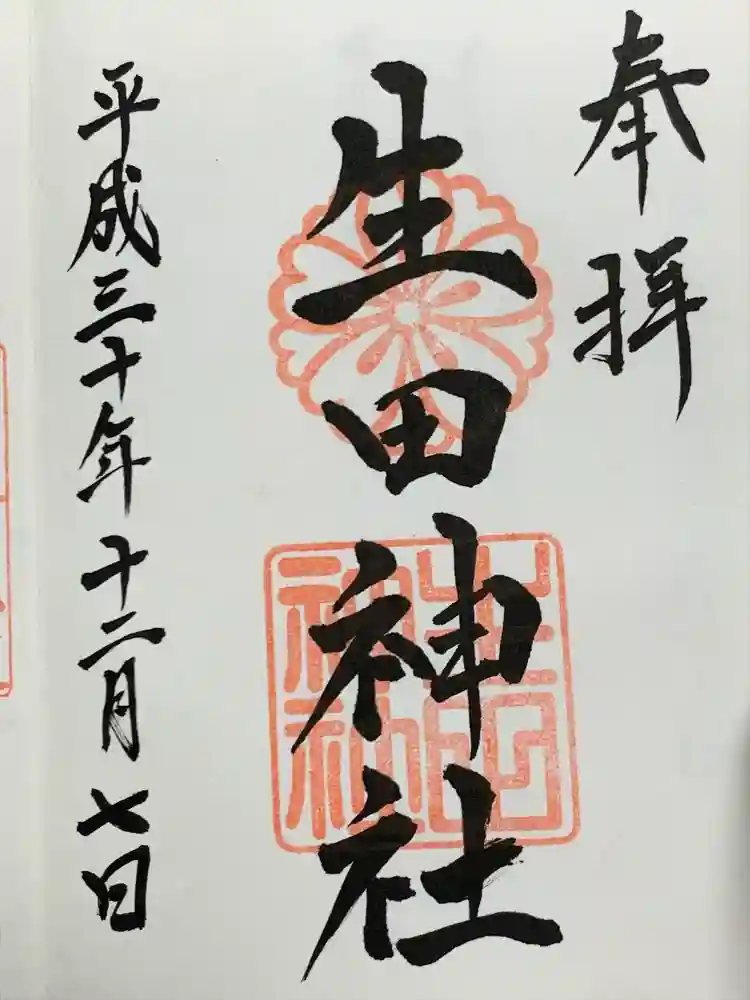 奉拝
生田神社
平成三十年十二月七日
生田
神社